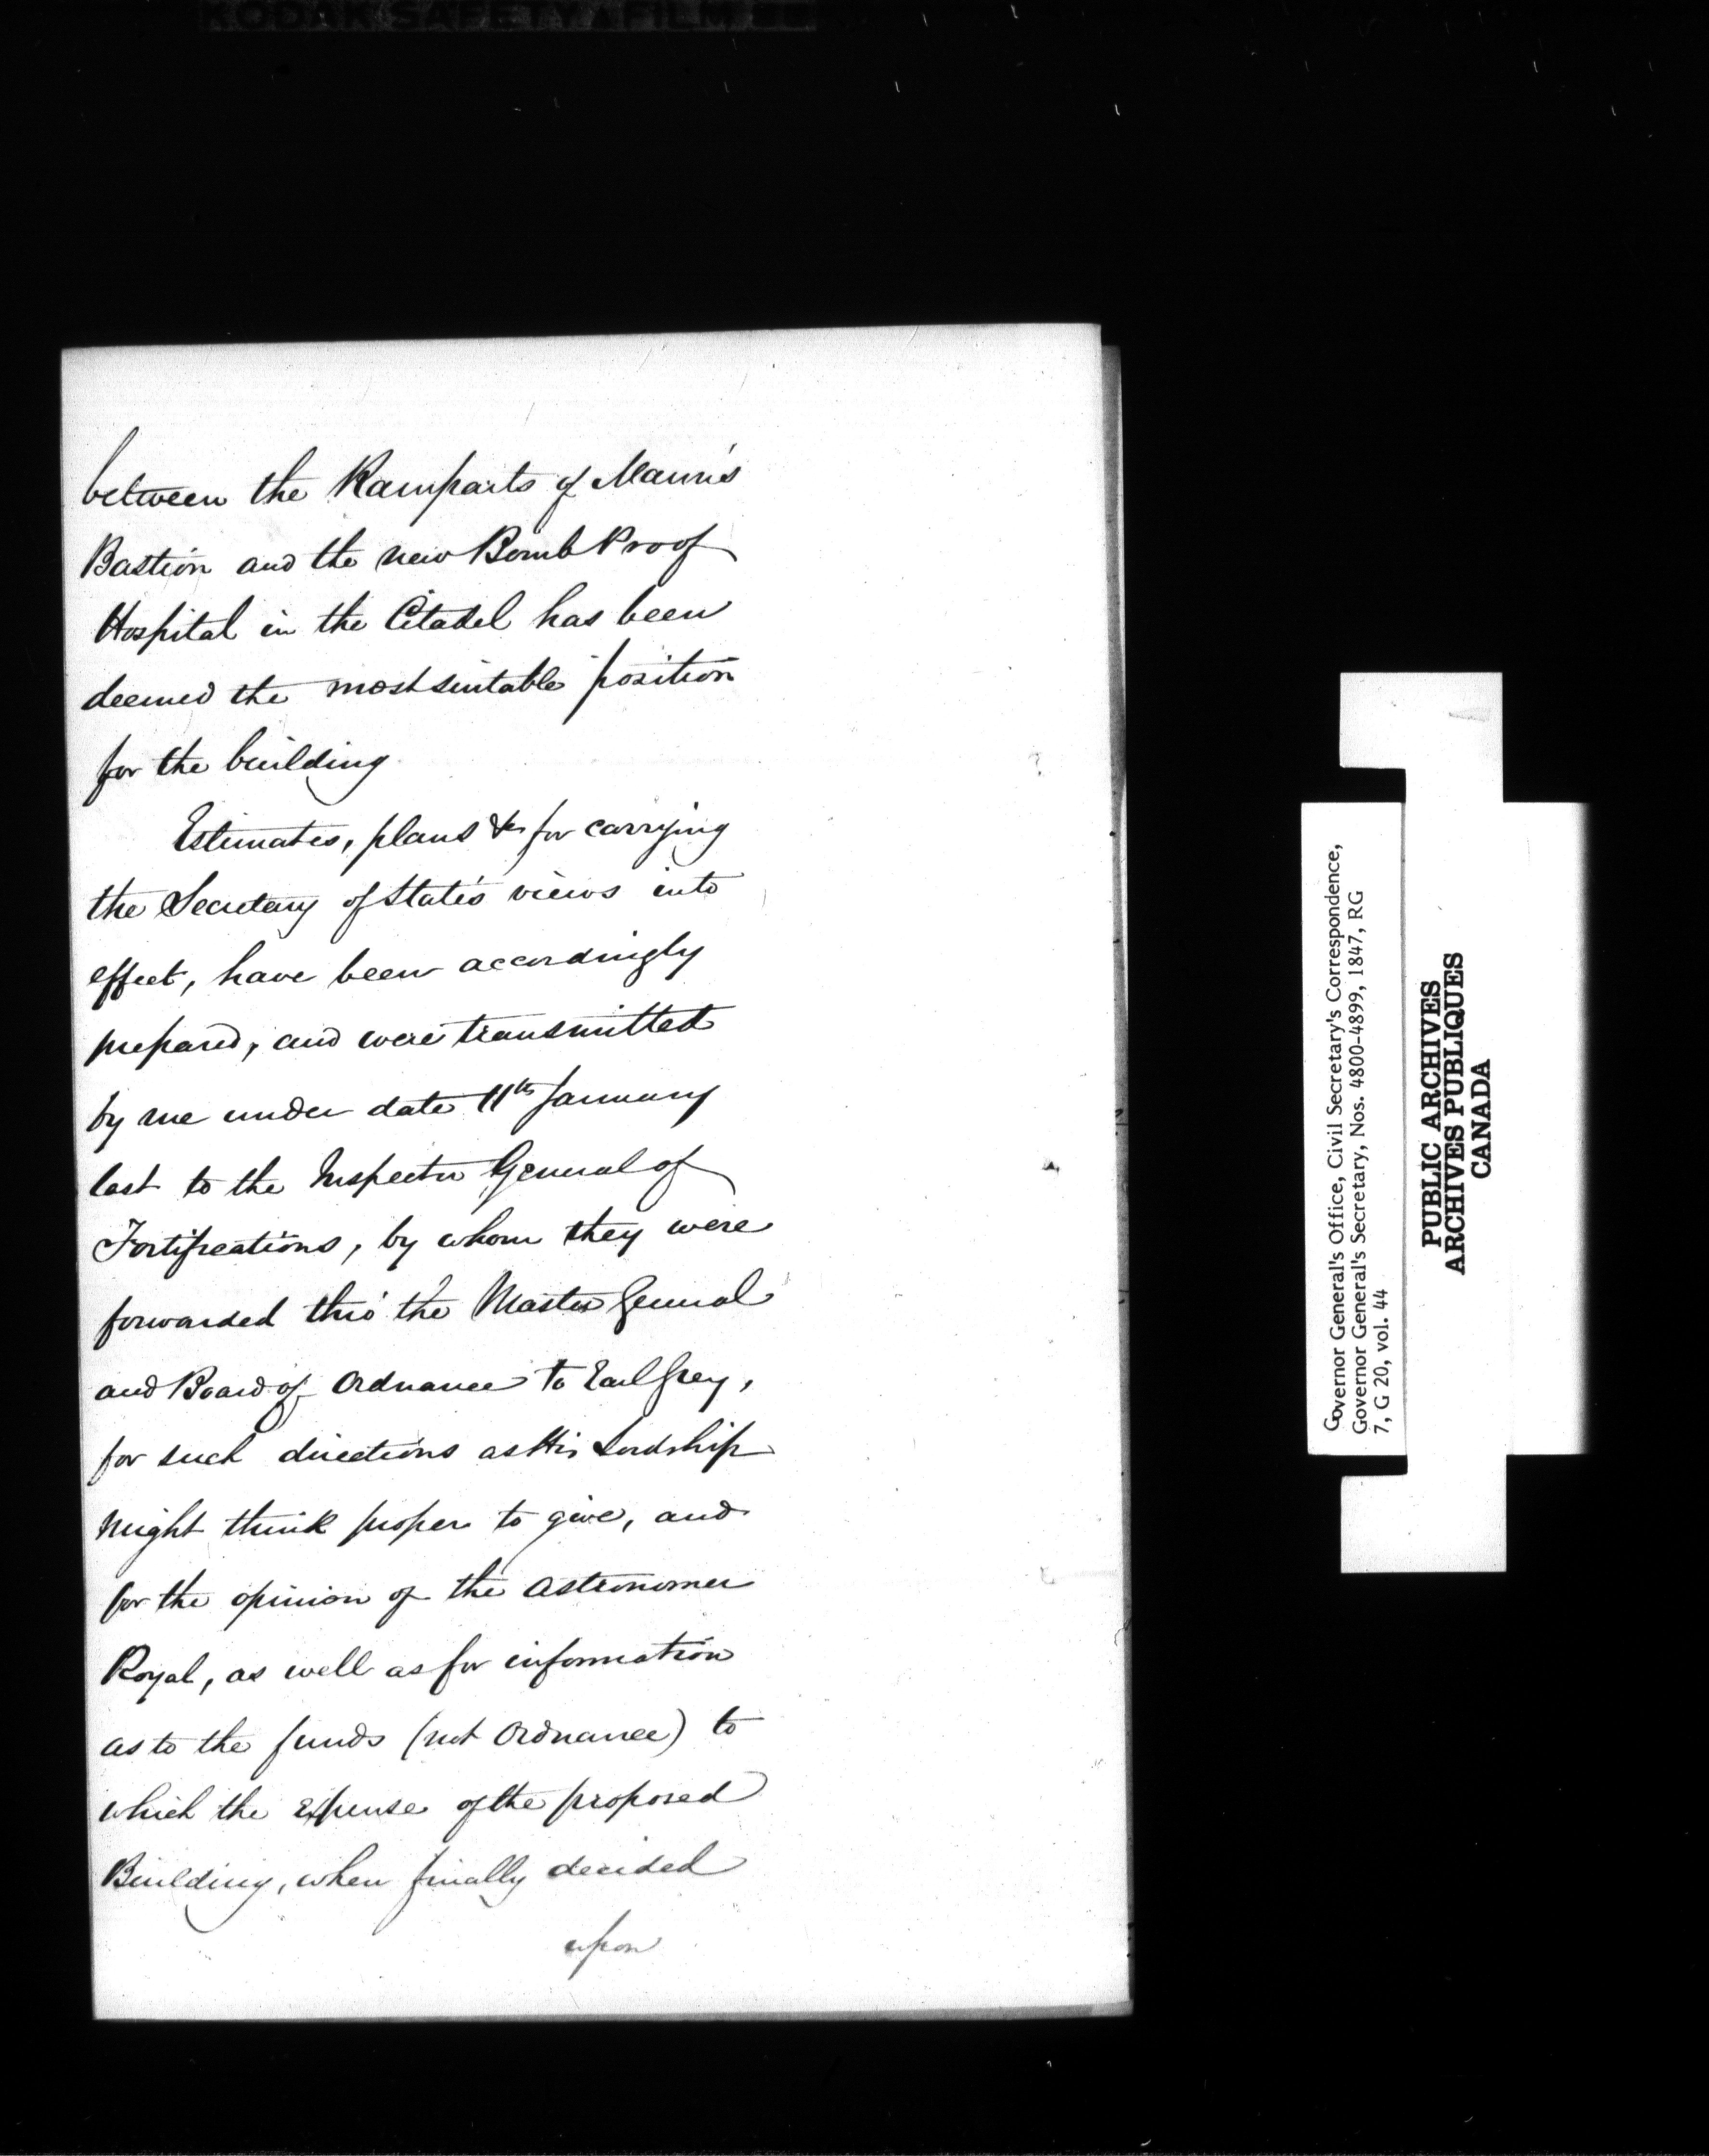 KODAK SAFETY FILM
between the Ramparts of Mann's
Bastion and the new Bomb Proof
Hospital in the Citadel has been
deemed the most suitable position
for the building
Estimates, plans &c for carrying
the Secretary of State's views into
effect, have been accordingly
prepared, and were transmitted
by me under date 11th January
last to the Inspector General of
Fortifications, by whom they were
forwarded thro' the Master General
and Board of Ordnance to Earl Grey,
for such directions as His Lordship
might think proper to give, and
for the opinion of the Astronomer
Royal, as well as for information
as to the funds (not Ordnance) to
which the Expense of the proposed
Building, when finally decided
upon
Governor General's Office, Civil Secretary's Correspondence,
Governor General's Secretary, Nos. 4800-4899, 1847, RG
7, G 20, vol. 44
PUBLIC ARCHIVES
ARCHIVES PUBLIQUES
CANADA